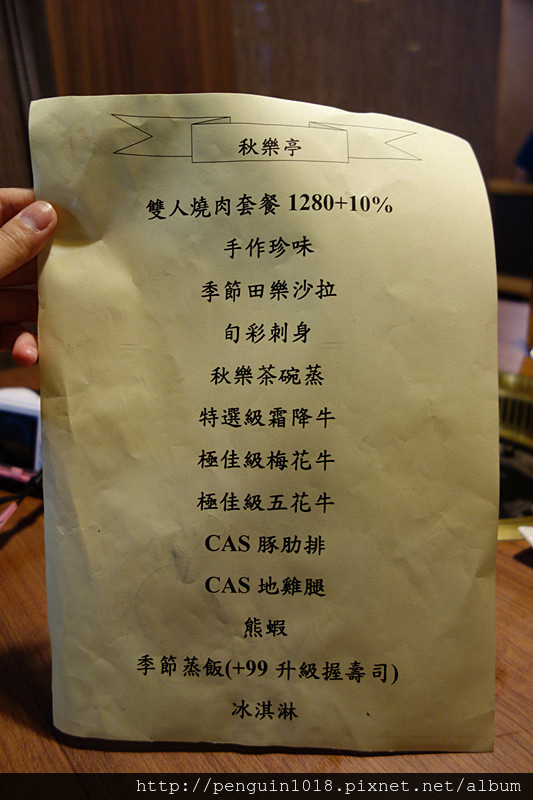 秋樂亭
雙人燒肉套餐 1280+10%
手作珍味
季節田樂沙拉
旬彩刺身
秋樂茶碗蒸
特選級霜降牛
極佳級梅花牛
極佳級五花牛
CAS 豚肋排
CAS 地雞腿
熊蝦
季節蒸飯(+99 升級握壽司)
冰淇淋
http://penguin1018.pixnet.net/album